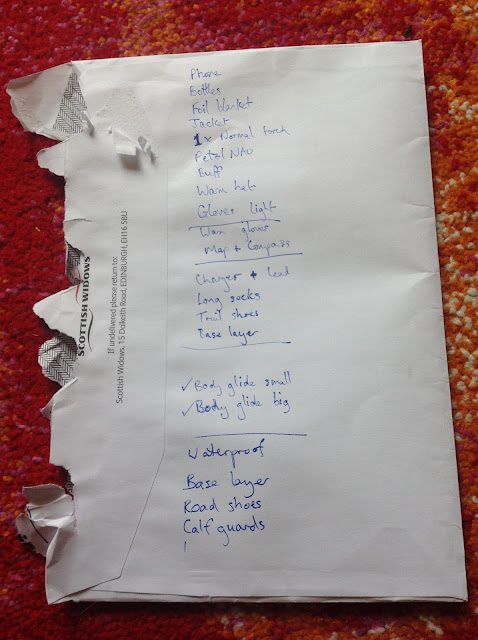 Phone
Bottles
Foil blanket
Jacket
1 x Normal torch
Petzl NAO
Buff
Warm hat
Gloves light
Warm gloves
Map + Compass
Charger + lead
Long socks
Trail shoes
Base layer
✓ Body glide small
✓ Body glide big
Waterproof
Base layer
Road shoes
Calf guards
SCOTTISH WIDOWS
If undelivered please return to:
Scottish Widows, 15 Dalkeith Road, EDINBURGH, EH16 5BU